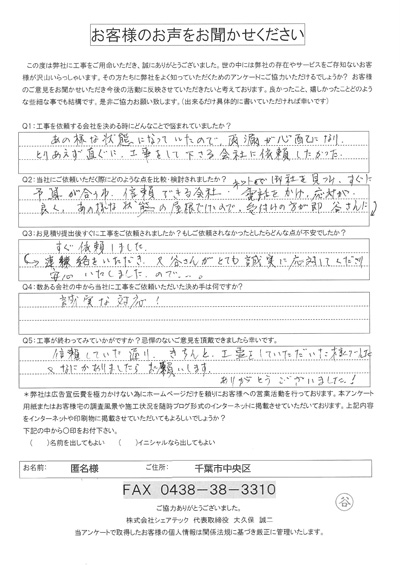 お客様のお声をお聞かせください
この度は弊社に工事をご用命いただき、誠にありがとうございました。世の中には弊社の存在やサービスをご存知ないお客
様が沢山いらっしゃいます。その方たちに弊社をよく知っていただくためのアンケートにご協力いただけるでしょうか？ お客様
のご意見をお聞かせいただき今後の活動に反映させていただきたいと考えております。良かったこと、嬉しかったことどのよう
な些細な事でも結構です。是非ご協力お願い致します。（出来るだけ具体的に書いていただければ幸いです）
Q1：工事を依頼する会社を決める時にどんなことで悩まれていましたか？
あの様な状態になっていたので、雨漏が心配になり、
とりあえず直ぐに、工事をして下さる会社に依頼したかった。
Q2：当社にご依頼いただく際にどのような点を比較・検討されましたか？
ネットで御社を見つけ、すぐに
予算が合うか、信頼できる会社か、電話をかけ、応対が
良く、あの様な状態の屋根だけので、受付けの方が即 谷さんに
Q3：お見積り提出後すぐに工事をご依頼されましたか？もしご依頼されなかったとしたらどんな点が不安でしたか？
すぐ依頼しました。
連絡をいただき、又谷さんがとても誠実に応対してくださり
安心いたしましたので…。
Q4：数ある会社の中から当社に工事をご依頼いただいた決め手は何ですか？
誠実な対応！
Q5：工事が終わってみていかがですか？忌憚のないご意見を頂戴できましたら幸いです。
信頼していた通り、きちんと、工事をしていただいた様ですね
又なにかありましたらお願いします。
ありがとうございました！
＊弊社は広告宣伝費を極力かけない為にホームページだけを頼りにお客様への営業活動を行っております。本アンケート
用紙またはお客様宅の調査風景や施工状況を随時ブログ形式のインターネットに掲載させていただいております。上記内容
をインターネットや印刷物に掲載させていただいてもよろしいでしょうか？
下記の中から〇印をお付下さい。
（　　）名前を出してもよい　（　　）イニシャルなら出してもよい
お名前： 匿名様 ご住所： 千葉市中央区
FAX 0438-38-3310
ご協力ありがとうございました。
株式会社シェアテック 代表取締役 大久保 誠二
当アンケートで取得したお客様の個人情報は関係法規に基づき厳正に管理いたします。
谷